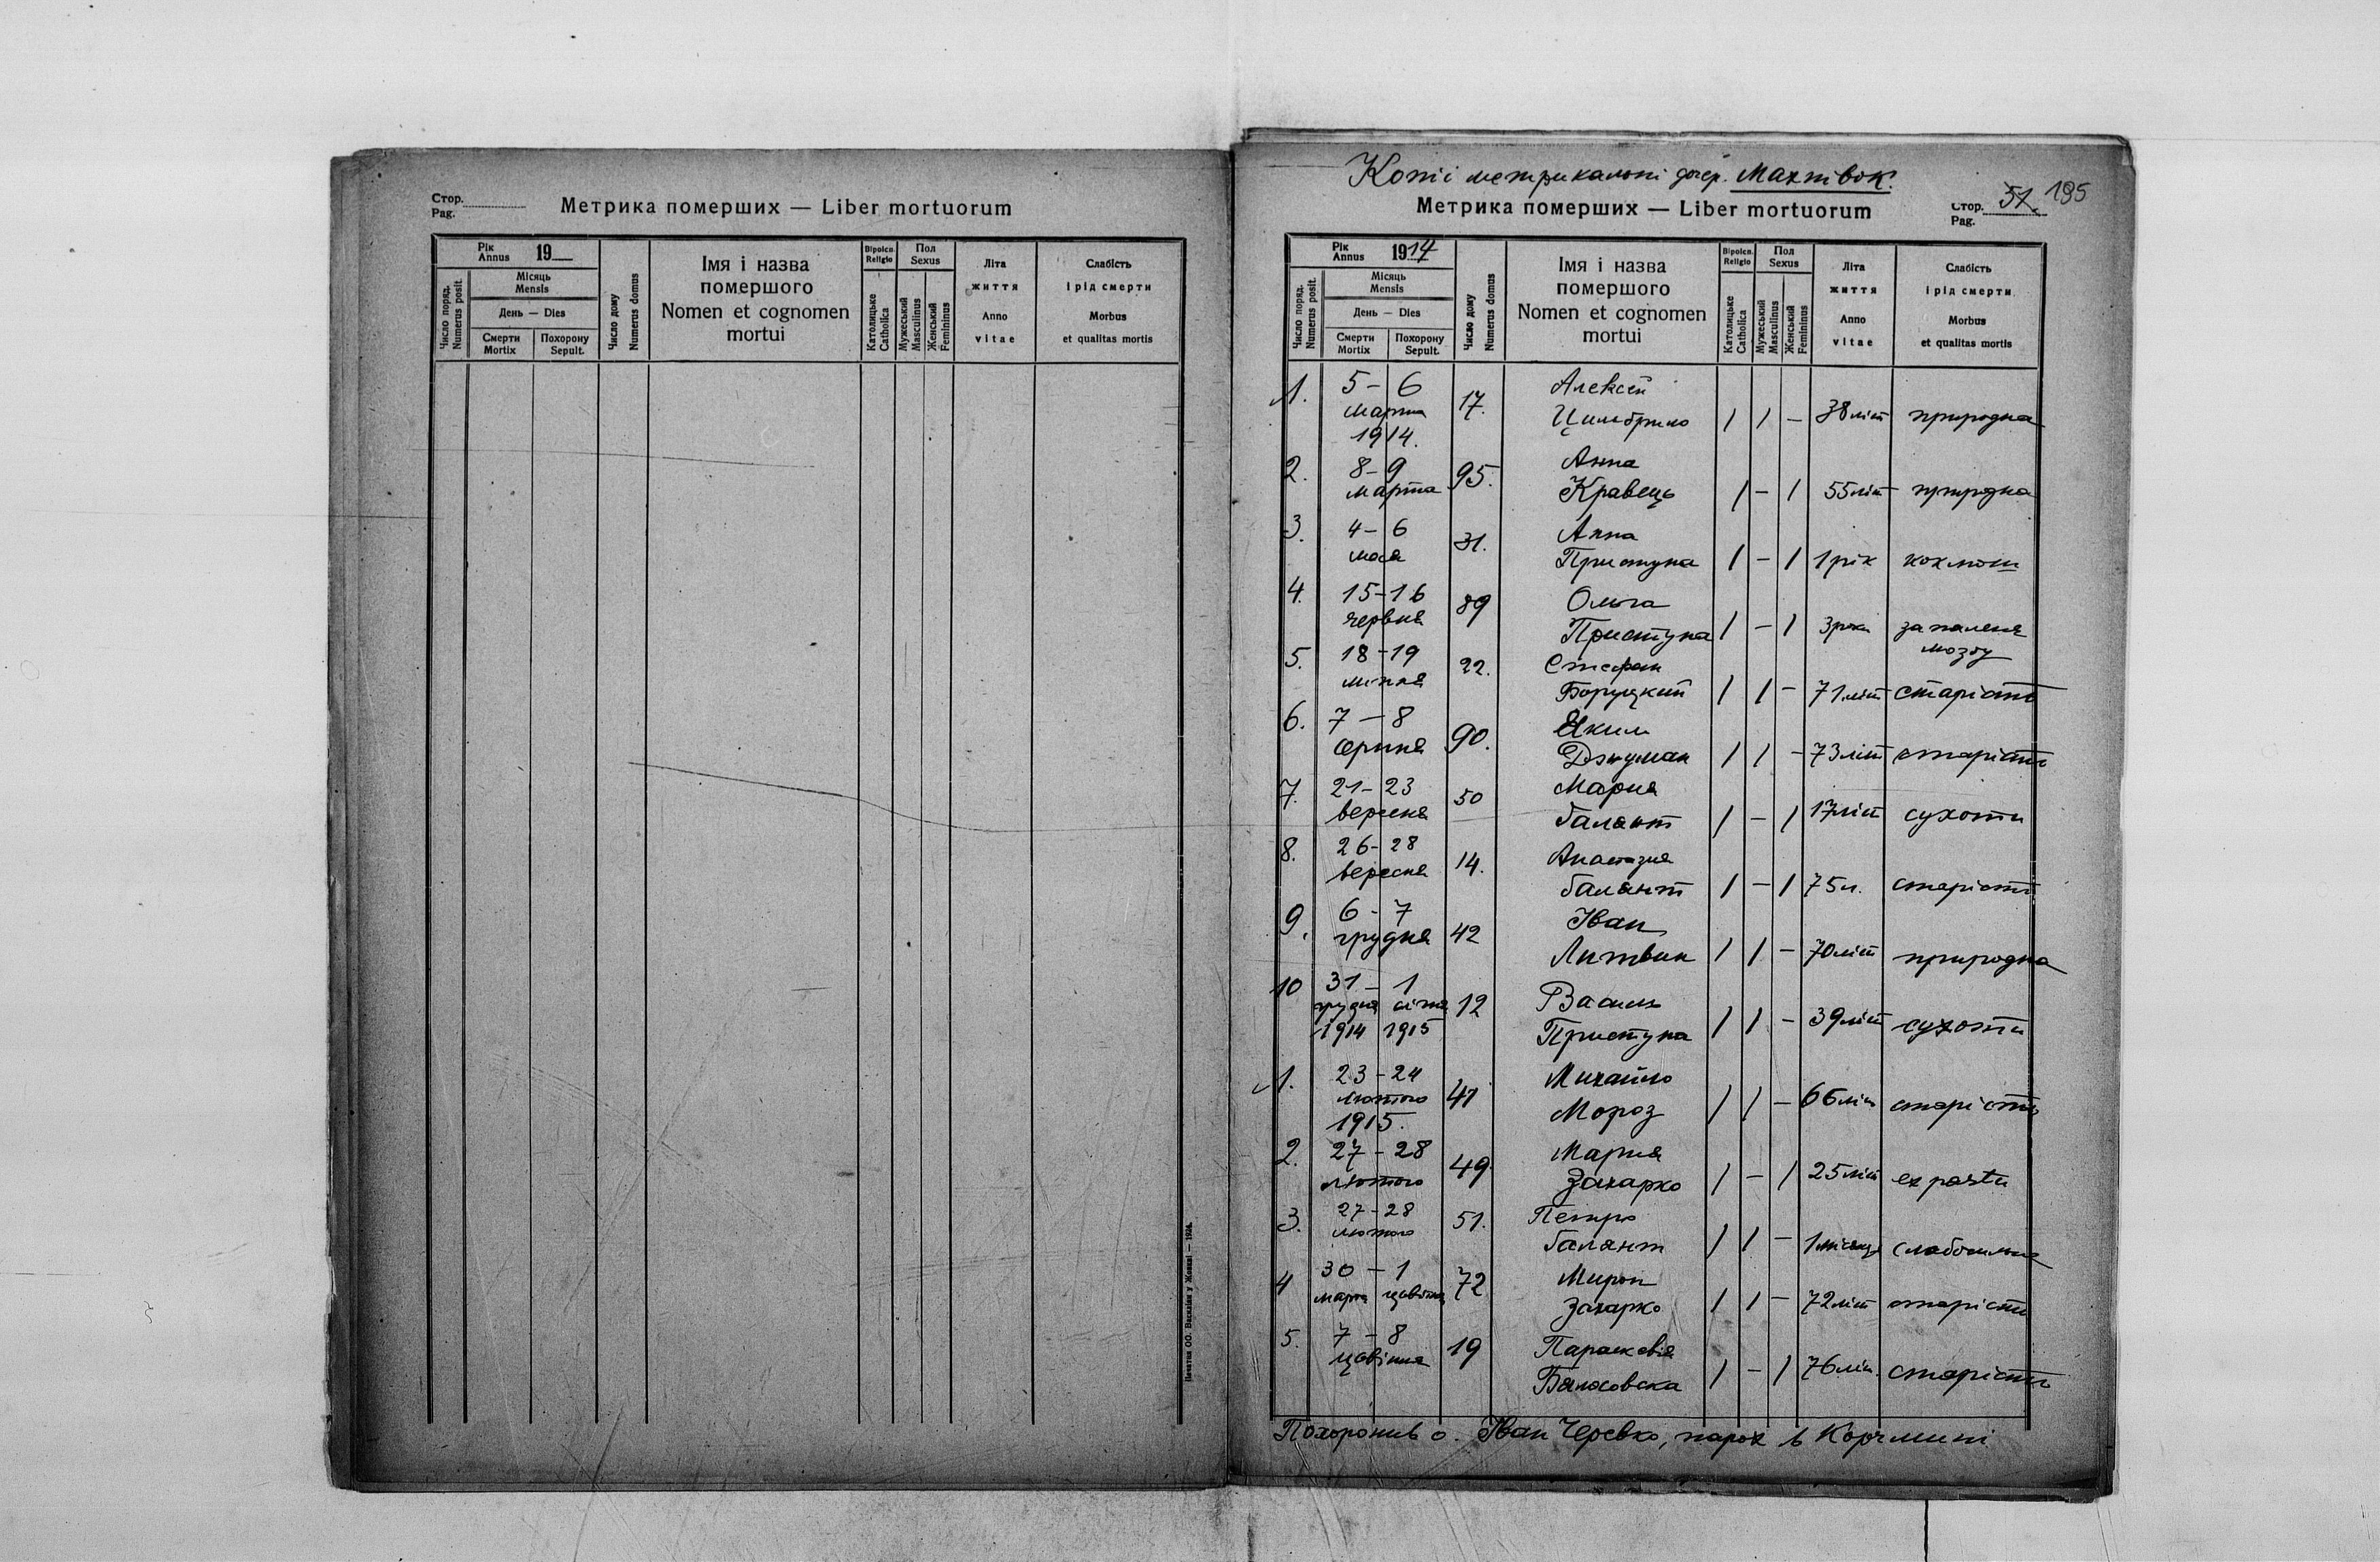 Стор.
Pag.
Метрика померших — Liber mortuorum
Рік
Annus 19
Місяць
Mensis
День — Dies
Смерти
Mortix
Похорону
Sepult.
Число поряд.
Numerus posit.
Число дому
Numerus domus
Імя і назва
помершого
Nomen et cognomen
mortui
Віроісп.
Religio
Католицьке
Catholica
Пол
Sexus
Мужеський
Masculinus
Женський
Femininus
Літа
життя
Anno
vitae
Слабість
і рід смерти
Morbus
et qualitas mortis
Печатня ОО. Василіян у Жовкві — 1924.
Копії метрикальні дочер. Махнівок.
Метрика померших — Liber mortuorum
Стор. 51. 195
Pag.
Рік
Annus 1914
Місяць
Mensis
День — Dies
Смерти
Mortix
Похорону
Sepult.
Число поряд.
Numerus posit.
Число дому
Numerus domus
Імя і назва
помершого
Nomen et cognomen
mortui
Віроісп.
Religio
Католицьке
Catholica
Пол
Sexus
Мужеський
Masculinus
Женський
Femininus
Літа
життя
Anno
vitae
Слабість
і рід смерти
Morbus
et qualitas mortis
1. 5 - 6 17. Алексій
марта Цимбрило 1 1 - 38 літ природна
1914.
2. 8 - 9 95. Анна
марта Кравець 1 - 1 55 літ природна
3. 4 - 6 31. Анна
мая Приступа 1 - 1 1 рік коклюш
4. 15 - 16 89 Ольга
червня Приступа 1 - 1 3 роки запаленя
мозгу
5. 18 - 19 22. Стефан
липня Боруцкий 1 1 - 71 літ старість
6. 7 - 8 90. Яким
серпня Джуман 1 1 - 73 літ старість
7. 21 - 23 50 Мария
вересня Галант 1 - 1 17 літ сухоти
8. 26 - 28 14. Анастазия
вересня Галянт 1 - 1 75 л. старість
9. 6 - 7 42 Іван
грудня Литвин 1 1 - 70 літ природна
10 31 - 1 12 Василь
грудня січня
1914 1915 Приступа 1 1 - 39 літ сухоти
1. 23 - 24 41 Михайло
лютого Мороз 1 1 - 66 літ старість
1915.
2. 27 - 28 49. Мария
лютого Захарко 1 - 1 25 літ ex partu
3. 27 - 28 51. Петро
лютого Галянт 1 1 - 1 місяць
4 30 - 1 72 Мирон
марта цвітня Захарко 1 1 - 72 літ старість
5. 7 - 8 19 Параскевія
цвітня 1 - 1 76 літ. старість
Похоронив о. Іван Черевко, парох в Корчмині